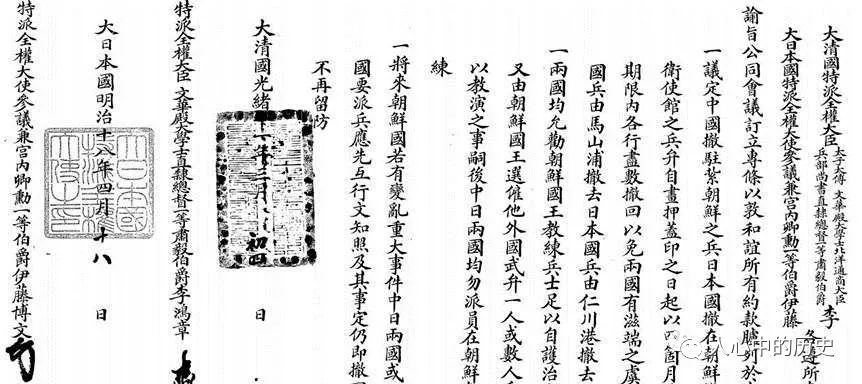 大清國特派全權大臣太子太傅文華殿大學士北洋通商大臣兵部尚書直隸總督一等肅毅伯爵李
大日本國特派全權大使參議兼宮內卿勳一等伯爵伊藤各遵所
諭旨公同會議訂立專條以敦和誼所有約款臚列於
一議定中國撤駐紮朝鮮之兵日本國撤在朝鮮
衛使館之兵弁自畫押蓋印之日起以四箇月
期限內各行盡數撤回以免兩國有滋端之虞
國兵由馬山浦撤去日本國兵由仁川港撤去
一兩國均允勸朝鮮國王教練兵士足以自護治
又由朝鮮國王選僱他外國武弁一人或數人
以教演之事嗣後中日兩國均勿派員在朝鮮
練
一將來朝鮮國若有變亂重大事件中日兩國或
國要派兵應先互行文知照及其事定仍即撤
不再留防
大清國光緒十一年三月初四日
特派全權大臣文華殿大學士直隸總督一等肅毅伯爵李鴻章
大日本國明治十八年四月十八日
特派全權大使參議兼宮內卿勳一等伯爵伊藤博文
人心中的历史